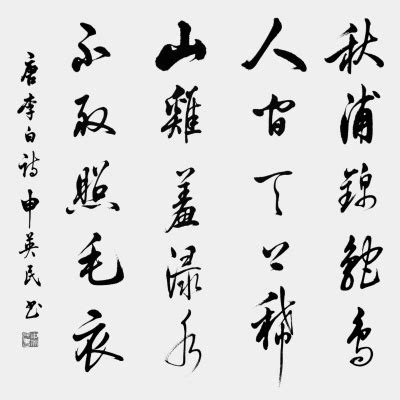 秋浦錦鴕鳥
人間天上稀
山雞羞渌水
不敢照毛衣
唐李白詩申英民书